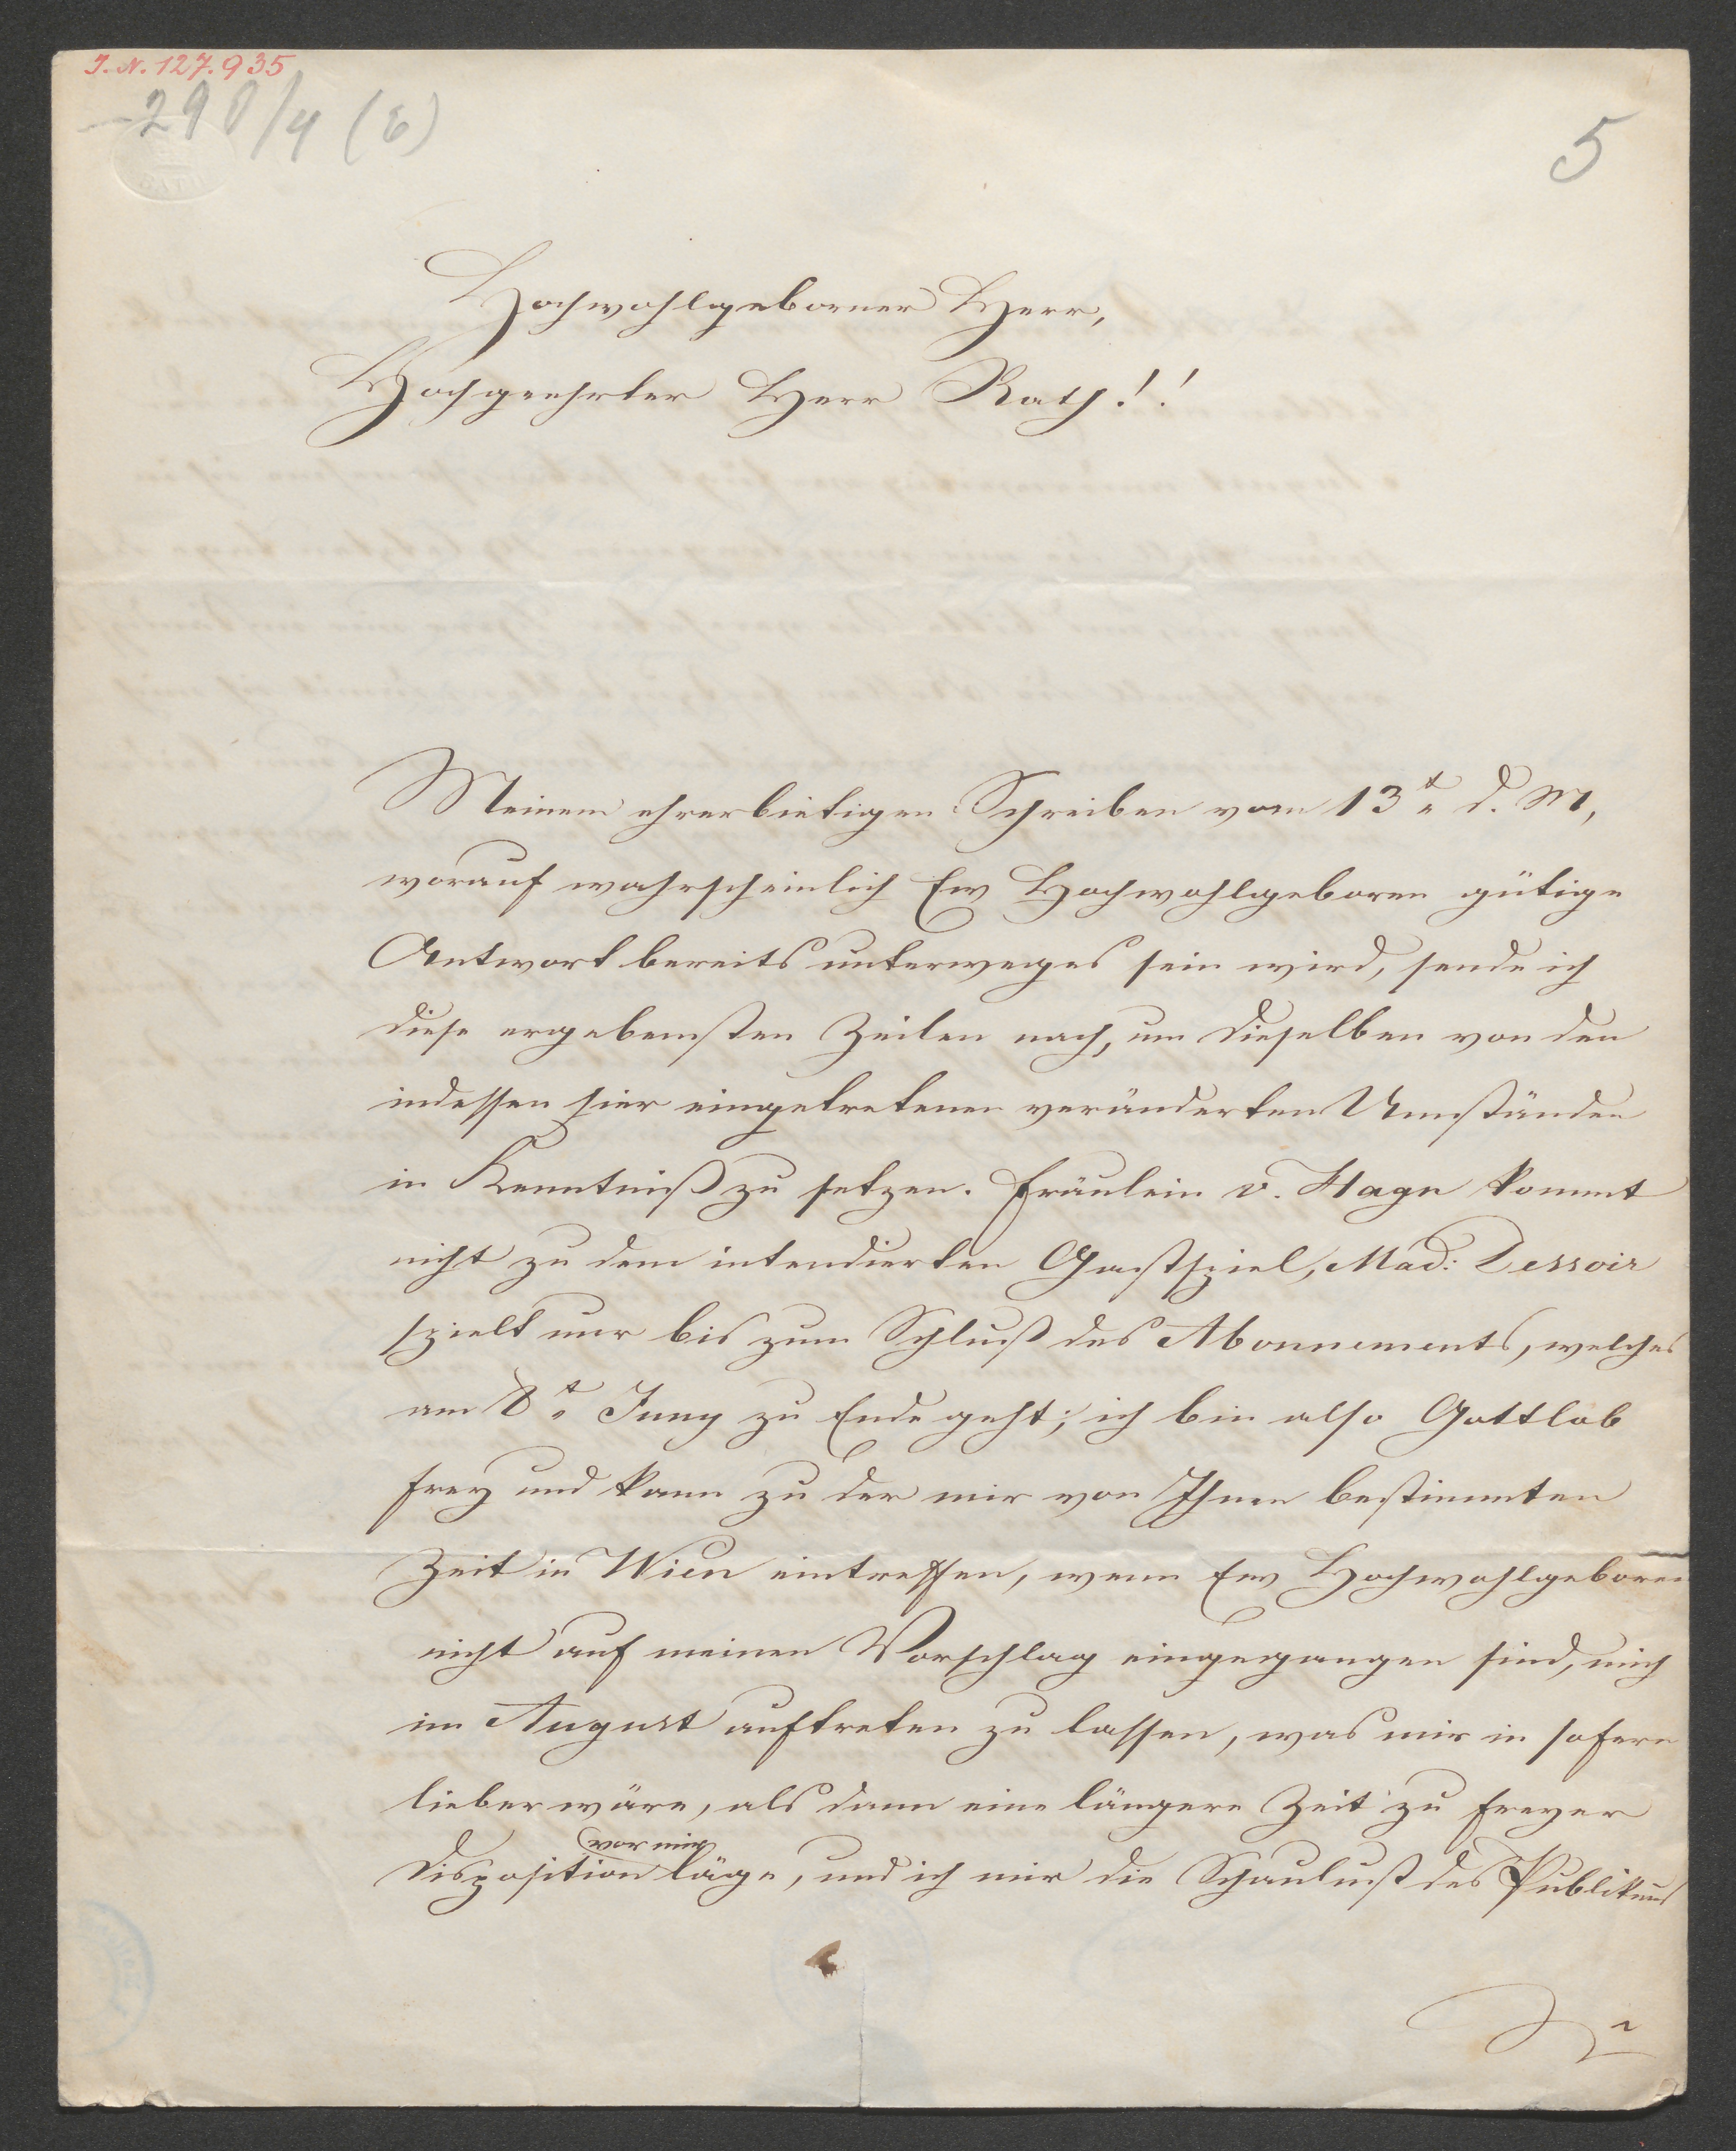 I.N. 127.935
290/4 (6)
5
Hochwohlgeborner Herr,
Hochgeehrter Herr Rath!!
Meinem ehrerbietigen Schreiben vom 13t. d. M,
worauf wahrscheinlich Ew Hochwohlgeboren gütige
Antwort bereits unterweges sein wird, sende ich
diese ergebensten Zeilen nach, um dieselben von den
indessen hier eingetretenen veränderten Umständen
in Kenntniß zu setzen. Fräulein v. Hagn kommt
nicht zu dem intendierten Gastspiel, Mad: Dessoir
spielt nur bis zum Schluß des Abonnements, welches
am 8t. Juny zu Ende geht; ich bin also Gottlob
frey und kann zu der mir von Ihnen bestimmten
Zeit in Wien eintreffen, wenn Ew Hochwohlgeboren
nicht auf meinen Vorschlag eingegangen sind, mich
im August auftreten zu lassen, was mir in sofern
lieber wäre, als dann eine längere Zeit zu freyer
vor mir
Disposition läge, und ich mir die Schaulust des Publikums